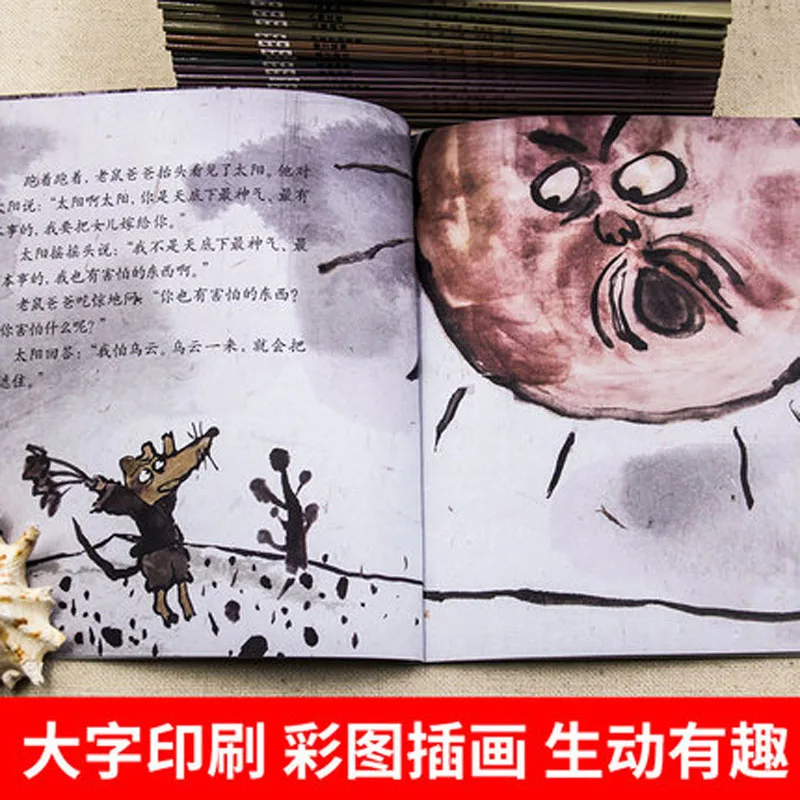 跑着跑着，老鼠爸爸抬头看见了太阳。他对
太阳说：“太阳啊太阳，你是天底下最神气、最有
本事的，我要把女儿嫁给你。”
太阳摇摇头说：“我不是天底下最神气、最
本事的，我也有害怕的东西啊。”
老鼠爸爸吃惊地问：“你也有害怕的东西？
你害怕什么呢？”
太阳回答：“我怕乌云。乌云一来，就会把
遮住。”
大字印刷 彩图插画 生动有趣